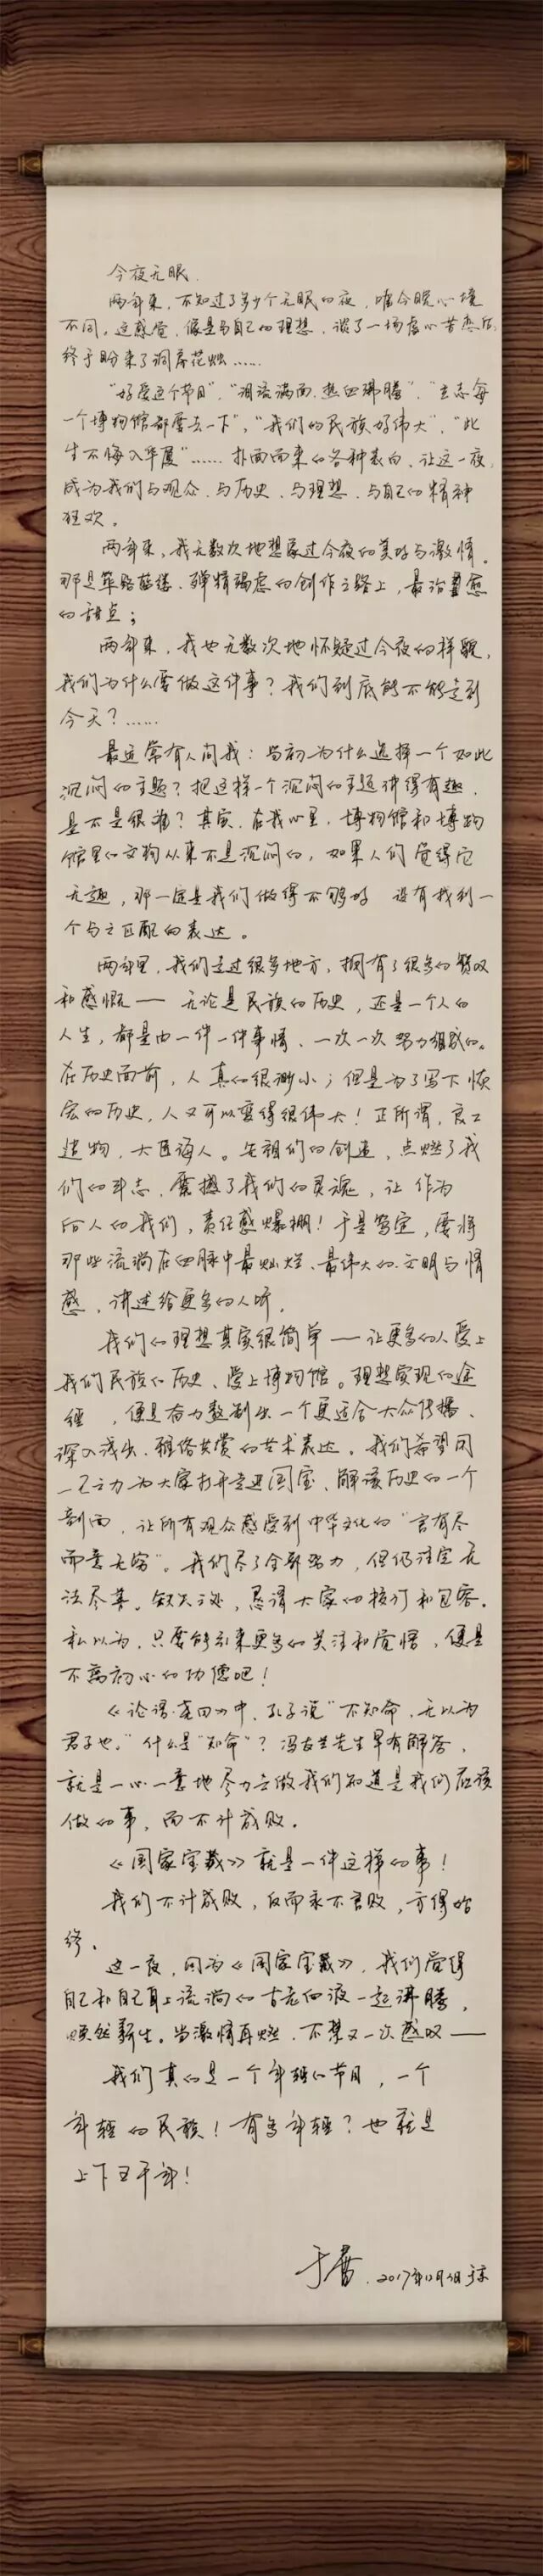 今夜无眠
两年来，不知过了多少个无眠的夜，唯今晚心境
不同，这感觉，像是与自己的理想，谈了一场虐心苦恋后，
终于盼来了洞房花烛……
“好爱这个节目”，“泪流满面，热血沸腾”，“立志每
一个博物馆都要去一下”，“我们的民族好伟大”，“此
生不悔入华夏”……扑面而来的各种表白，让这一夜，
成为我们与观众、与历史、与理想、与自己的精神
狂欢。
两年来，我无数次地想象过今夜的美好与激情。
那是筚路蓝缕、殚精竭虑的创作之路上，最治愈
的甜点；
两年来，我也无数次地怀疑过今夜的样貌，
我们为什么要做这件事？我们到底能不能走到
今天？……
最近常有人问我：当初为什么选择一个如此
沉闷的主题？把这样一个沉闷的主题讲得有趣，
是不是很难？其实，在我心里，博物馆和博物
馆里的文物从来不是沉闷的，如果人们觉得它
无趣，那一定是我们做得不够好，没有找到一
个与之匹配的表达。
两年里，我们走过很多地方，拥有了很多的赞叹
和感慨——无论是民族的历史，还是一个人的
人生，都是由一件一件事情、一次一次努力组成的。
在历史面前，人真的很渺小；但是为了写下恢
宏的历史，人又可以变得很伟大！正所谓，良工
造物，大匠诲人。先祖们的创造，点燃了我
们的斗志，震撼了我们的灵魂，让作为
后人的我们，责任感爆棚！于是笃定，要将
那些流淌在血脉中最灿烂、最伟大的文明与情
感，讲述给更多的人听。
我们的理想其实很简单——让更多的人爱上
我们民族的历史、爱上博物馆。理想实现的途
径，便是奋力敖制出一个更适合大众传播、
深入浅出、雅俗共赏的艺术表达。我们希望用
一己之力为大家打开走进国宝、解读历史的一个
剖面，让所有观众感受到中华文化的“言有尽
而意无穷”。我们尽了全部努力，但仍注定无
法尽善。缺失之处，恳请大家的校订和包容。
私以为，只要能引来更多的关注和觉悟，便是
不离初心的功德吧！
《论语·尧曰》中，孔子说“不知命，无以为
君子也。”什么是“知命”？冯友兰先生早有解答，
就是一心一意地尽力去做我们知道是我们应该
做的事，而不计成败。
《国家宝藏》就是一件这样的事！
我们不计成败，反而永不言败，方得始
终。
这一夜，因为《国家宝藏》，我们觉得
自己和自己身上流淌的古老血液一起沸腾，
焕然新生。当激情再燃，不禁又一次感叹——
我们真的是一个年轻的节目，一个
年轻的民族！有多年轻？也就是
上下五千年！
于蕾，2017年12月3日于京